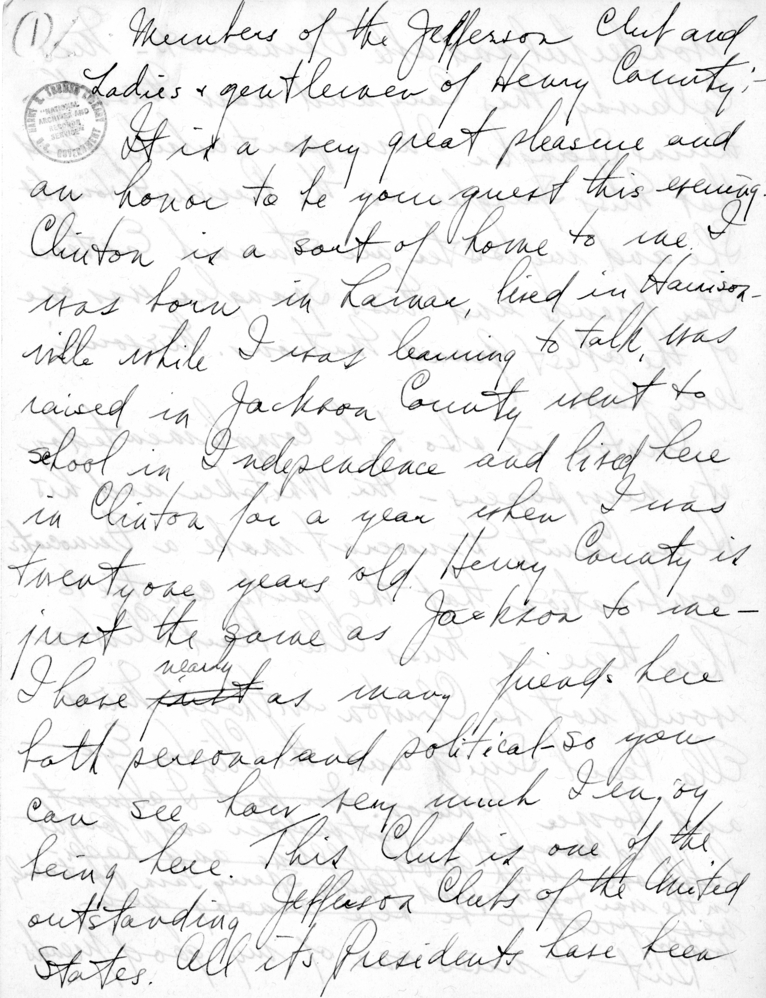 (1)
Members of the Jefferson Club and
Ladies & gentlemen of Henry County;-
HARRY S. TRUMAN LIBRARY
"NATIONAL ARCHIVES AND RECORDS SERVICE"
U.S. GOVERNMENT
It is a very great pleasure and
an honor to be your guest this evening.
Clinton is a sort of home to me. I
was born in Lamar, lived in Harrison-
ville while I was learning to talk, was
raised in Jackson County went to
school in Independence and lived here
in Clinton for a year when I was
twentyone years old. Henry County is
just the same as Jackson to me—
nearly
I have just as many friends here
both personal and political-so you
can see how very much I enjoy
being here. This Club is one of the
outstanding Jefferson Clubs of the United
States. All its Presidents have been